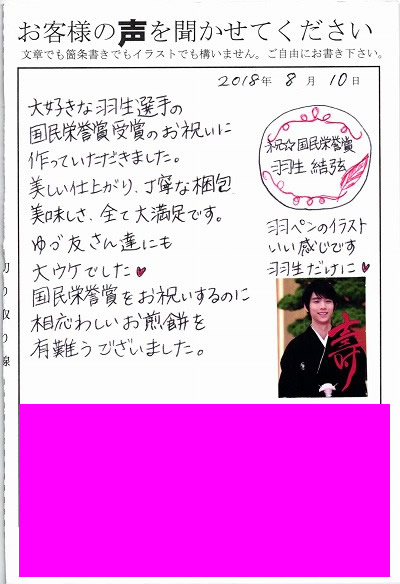 お客様の声を聞かせてください
文章でも箇条書きでもイラストでも構いません。ご自由にお書き下さい。
2018年 8月 10日
大好きな羽生選手の
国民栄誉賞受賞のお祝いに
作っていただきました。
美しい仕上がり、丁寧な梱包
美味しさ、全て大満足です。
ゆづ友さん達にも
大ウケでした♥
国民栄誉賞をお祝いするのに
相応わしいお煎餅を
有難うございました。
祝☆国民栄誉賞
羽生 結弦
羽ペンのイラスト
いい感じです
羽生だけに♥
寿
切り取り線